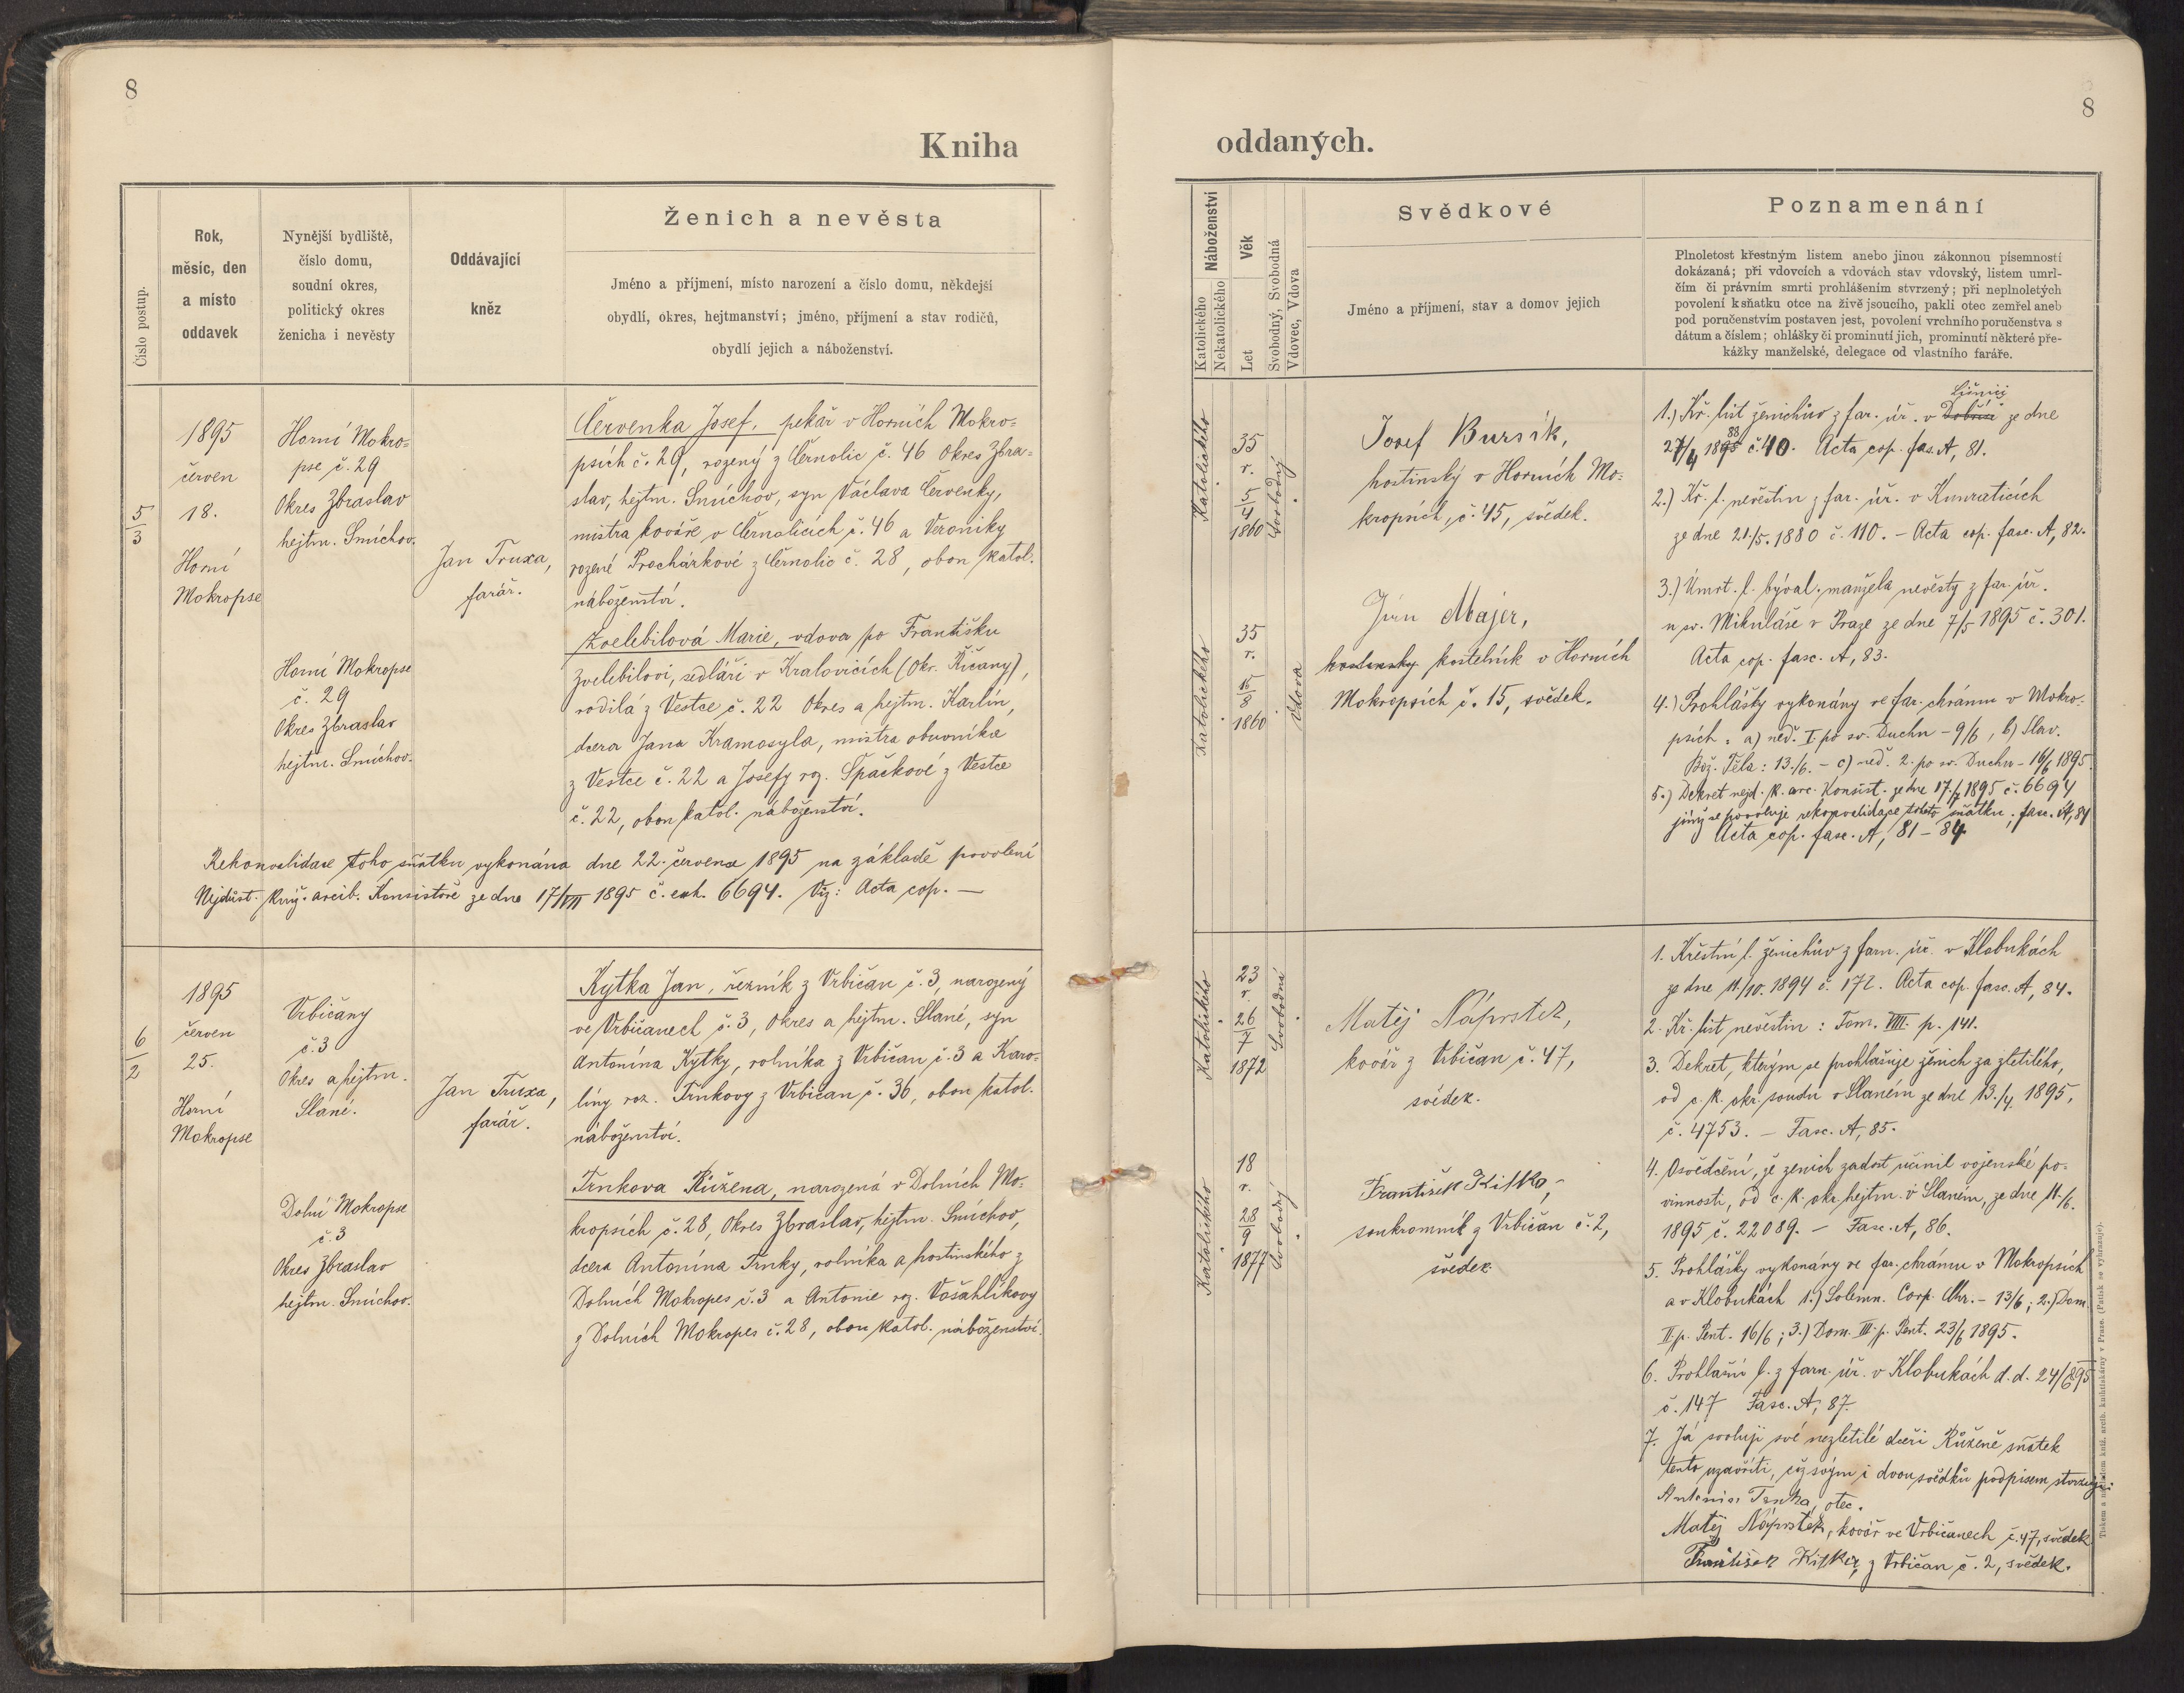 8
Kniha
Číslo postup.
Rok,
měsíc, den
a místo
oddavek
Nynější bydliště,
číslo domu,
soudní okres,
politický okres
ženicha i nevěsty
Oddávající
kněz
Ženich a nevěsta
Jméno a příjmení, místo narození a číslo domu, někdejší
obydlí, okres, hejtmanství; jméno, příjmení a stav rodičů,
obydlí jejich a náboženství.
5
3
1895
červen
18.
Horní
Mokropse
Horní Mokro=
pse č. 29
Okres Zbraslav
hejtm. Smíchov.
Jan Truxa,
farář.
Červenka Josef, pekař v Horních Mokro=
psích č. 29, rozený z Černolic č. 46 Okres Zbra=
slav, hejtm. Smíchov, syn Václava Červenky,
mistra kováře v Černolicích č. 46 a Veroniky
rozené Procházkové z Černolic č. 28, obou katol.
náboženství.
Horní Mokropse
č. 29
Okres Zbraslav
hejtm. Smíchov.
Zvelebilová Marie, vdova po Františku
Zvelebilovi, sedláři v Kralovicích (Okr. Říčany),
rodilá z Vestce č. 22 Okres a hejtm. Karlín,
dcera Jana Kramosyla, mistra obuvníka
z Vestce č. 22 a Josefy roz. Špačkové z Vestce
č. 22, obou katol. náboženství.
Rekonvalidace toho sňatku vykonána dne 22. července 1895 na základě povolení
Nejdůst. kníž. arcib. Konsistoře ze dne 17/VII 1895 č. exh. 6694. Viz: Acta cop. —
6
2
1895
červen
25.
Horní
Mokropse
Vrbičany
č. 3
Okres a hejtm.
Slané.
Jan Truxa,
farář.
Kytka Jan, řezník z Vrbičan č. 3, narozený
ve Vrbičanech č. 3, Okres a hejtm. Slané, syn
Antonína Kytky, rolníka z Vrbičan č. 3 a Karo=
líny roz. Trnkovy z Vrbičan č. 36, obou katol.
náboženství.
Dolní Mokropse
č. 3
Okres Zbraslav
hejtm. Smíchov.
Trnkova Růžena, narozená v Dolních Mo=
kropsích č. 28, Okres Zbraslav, hejtm. Smíchov,
dcera Antonína Trnky, rolníka a hostinského z
Dolních Mokropes č. 3 a Antonie roz. Vošahlíkovy
z Dolních Mokropes č. 28, obou katol. náboženství.
8
oddaných.
Náboženství
Katolického
Nekatolického
Věk
Let
Svobodný, Svobodná
Vdovec, Vdova
Svědkové
Jméno a příjmení, stav a domov jejich
Poznamenání
Plnoletost křestným listem anebo jinou zákonnou písemností
dokázaná; při vdovcích a vdovách stav vdovský, listem umrl-
čím či právním smrti prohlášením stvrzený; při neplnoletých
povolení k sňatku otce na živě jsoucího, pakli otec zemřel aneb
pod poručenstvím postaven jest, povolení vrchního poručenstva s
dátum a číslem; ohlášky či prominutí jich, prominutí některé pře-
kážky manželské, delegace od vlastního faráře.
Katolického
35
r.
5
4
1860
Svobodný
Josef Bursík,
hostinský v Horních Mo=
kropsích, č. 45, svědek.
Katolického
35
r.
15
8
1860
Vdova
Majer,
hostinský kostelník v Horních
Mokropsích č. 15, svědek.
Líšnici
1.) Kř. list ženichův z far. úř. v Dobříši ze dne
27/4 1895 88 č. 40. Acta cop. fas. A, 81.
2.) Kř. l. nevěstin z far. úř. v Kunraticích
ze dne 21./5. 1880 č. 110. – Acta cop. fasc. A, 82.
3.) Úmrt. l. býval. manžela nevěsty z far. úř.
u sv. Mikuláše v Praze ze dne 7/5 1895 č. 301.
Acta cop. fasc. A, 83.
4.) Prohlášky vykonány ve far. chrámu v Mokro=
psích: a) neď. I. po sv. Duchu – 9/6, b) Slav.
Bož. Těla: 13./6. – c) neď. 2. po sv. Duchu – 16/6 1895.
5.) Dekret nejd. k. arc. Konsist. ze dne 17./7 1895 č. 6694
jímž se povoluje rekonvalidace tohoto sňatku, fasc. A, 84
Acta cop. fasc. A, 81–84.
Katolického
23
r.
26
7
1872
Svobodní
Matěj Náprstek,
kovář z Vrbičan č. 47,
svědek.
Katolického
18
r.
28
9
1877
Svobodný
František Kitka,
soukromník z Vrbičan č. 2,
svědek
1. Křestní l. ženichův z farn. úř. v Klobukách
ze dne 11./10. 1894 č. 172. Acta cop. fasc. A, 84.
2. Kř. list nevěstin: Tom. VIII. p. 141.
3. Dekret, kterým se prohlašuje ženich za zletilého,
od c. k. okr. soudu v Slaném ze dne 13./4. 1895,
č. 4753. — Fasc. A, 85.
4. Osvědčení, že ženich zadost učinil vojenské po=
vinnosti, od c. k. okr. hejtm. v Slaném, ze dne 11./6.
1895 č. 22089. — Fasc. A, 86.
5. Prohlášky vykonány ve far. chrámu v Mokropsích
a v Klobukách 1.) Solemn. Corp. Chr. – 13/6; 2.) Dom.
II p. Pent. 16/6; 3.) Dom. III. p. Pent. 23/6 1895.
6. Prohlašní l. z farn. úř. v Klobukách d. d. 24/6 895
č. 147 Fasc. A, 87.
7. Já svoluji své nezletilé dceři Růženě sňatek
tento uzavříti, což svým i dvou svědků podpisem stvrzuji:
Antonín Trnka, otec.
Matěj Náprstek, kovář ve Vrbičanech č. 47, svědek
František Kitka, z Vrbičan č. 2, svědek.
Tiskem a nákladem kníž. arcib. knihtiskárny v Praze. (Patisk se vyhrazuje).